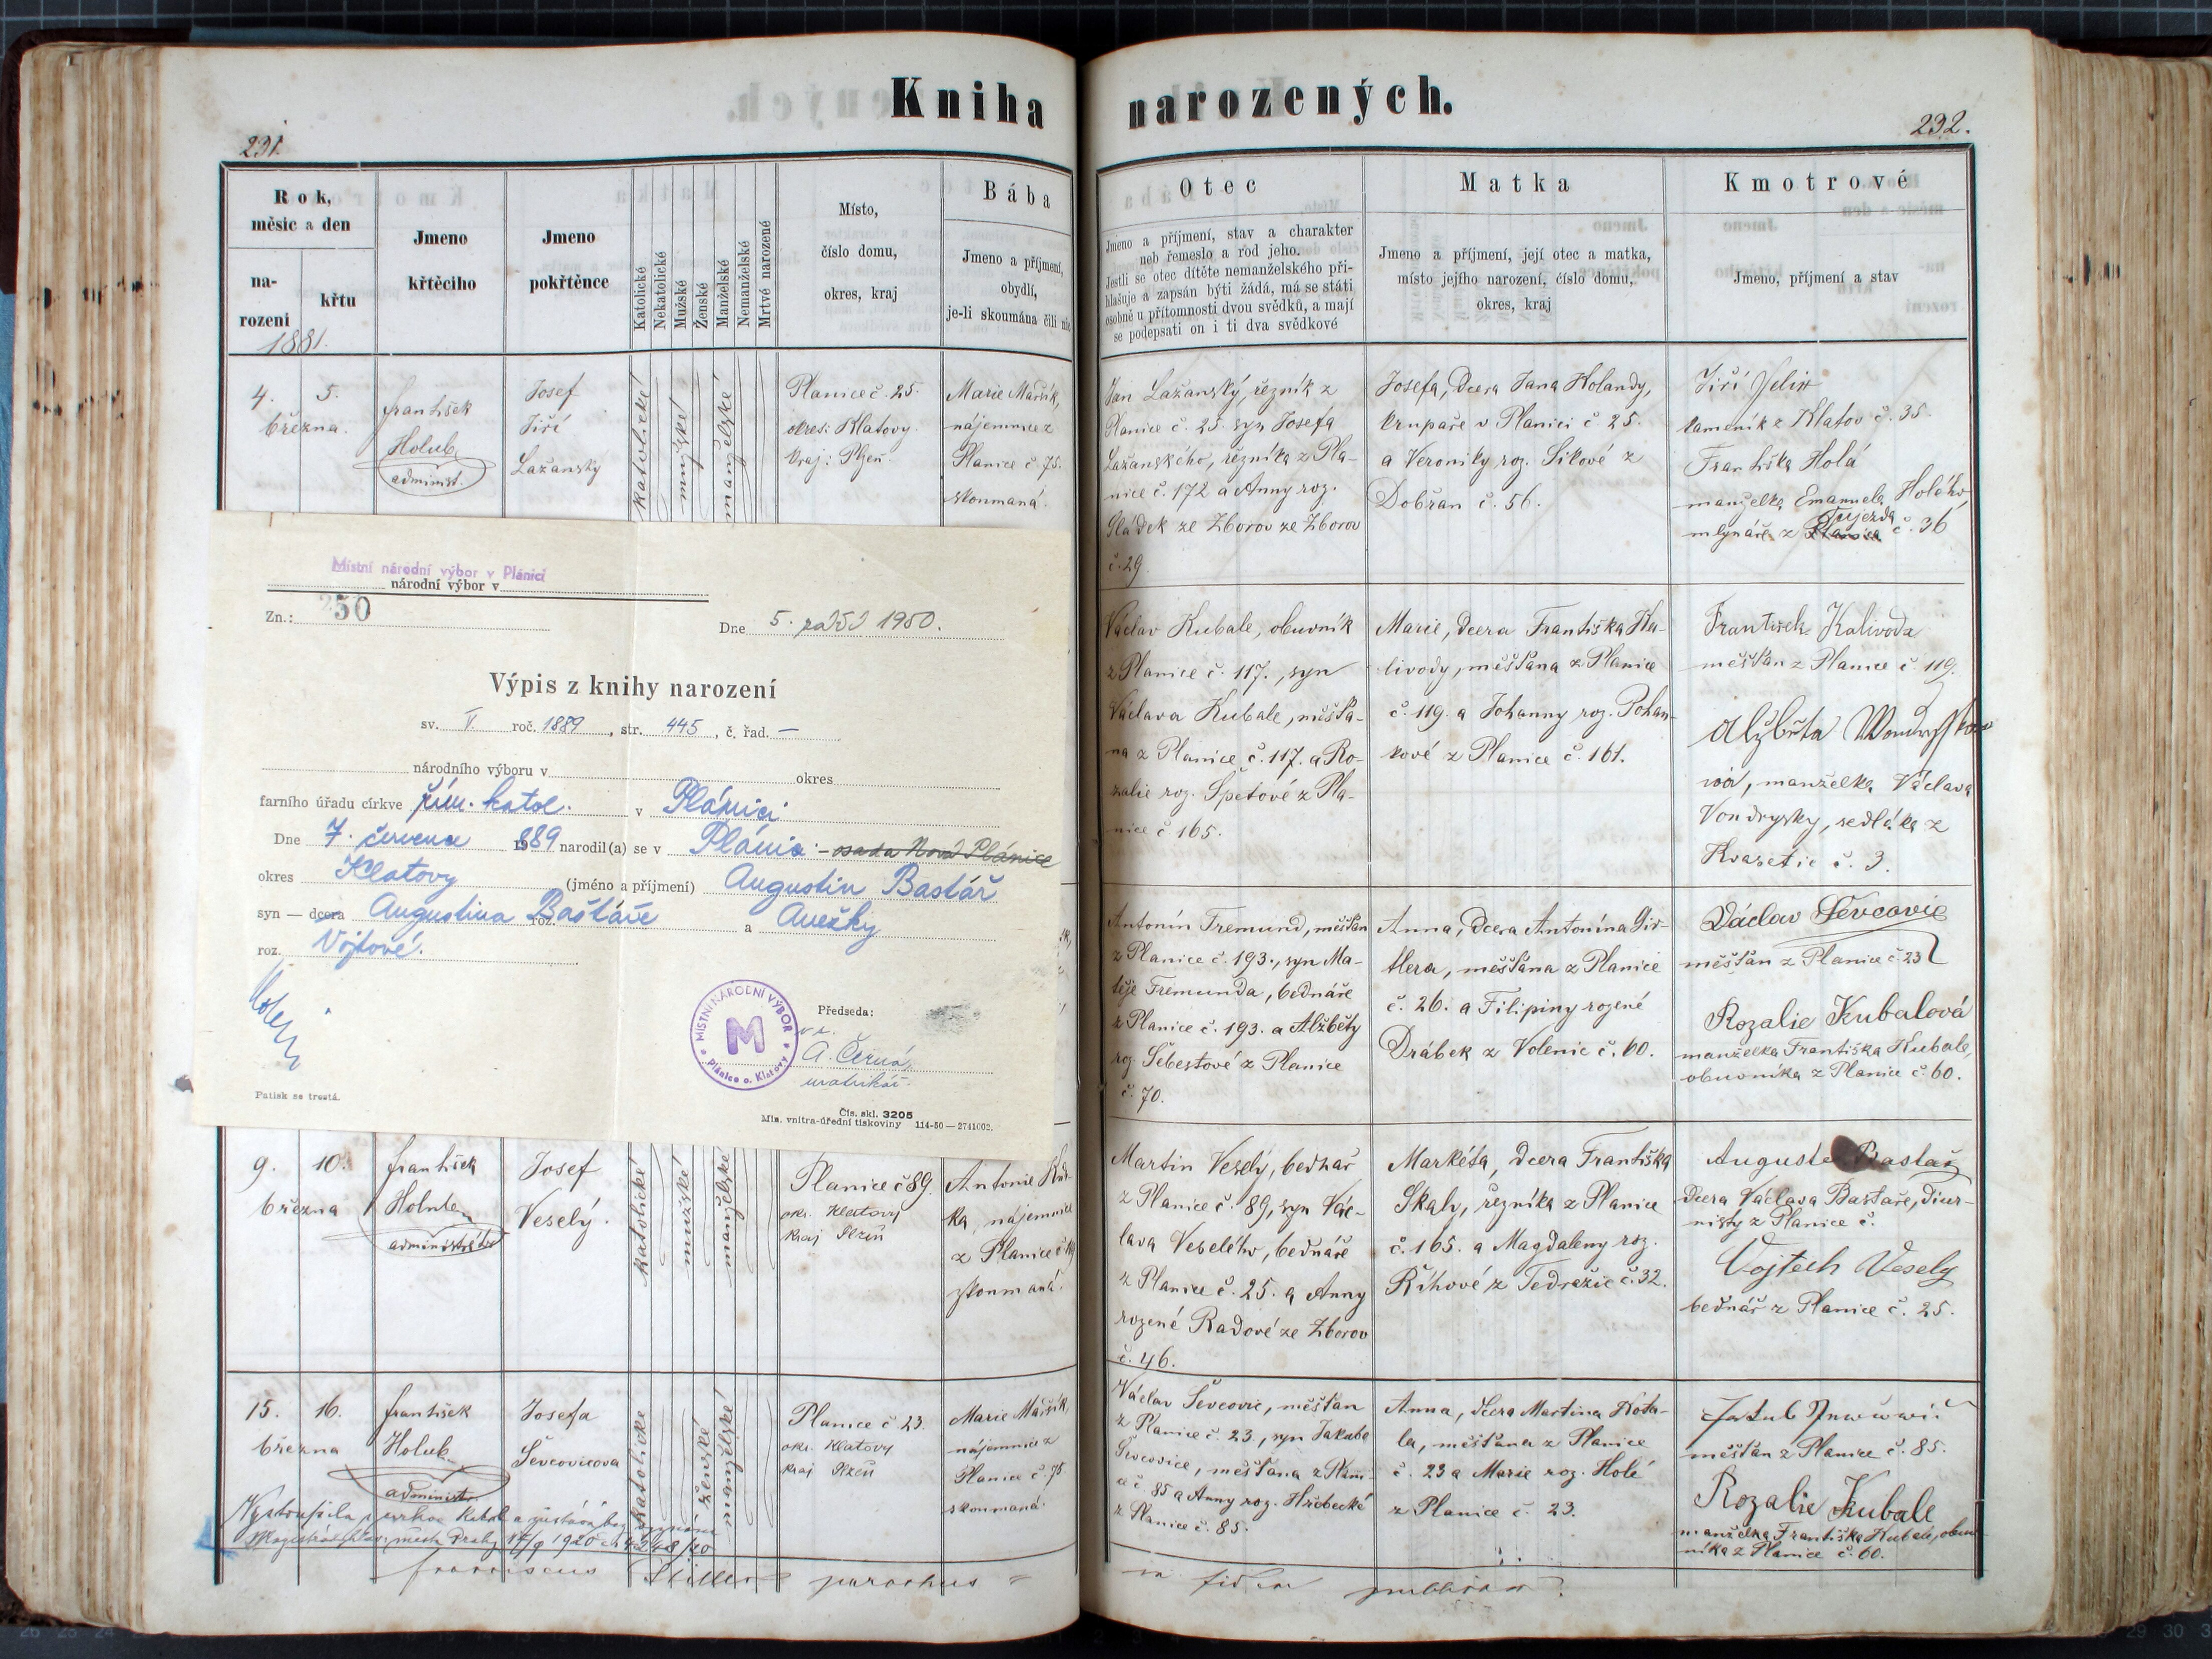 Kniha narozených.
231.
232.
Rok,
měsíc a den
na-
rozeni
křtu
1881.
Jmeno
křtěcího
Jmeno
pokřtěnce
Katolické
Nekatolické
Mužské
Ženské
Manželské
Nemanželské
Mrtvé narozené
Místo,
číslo domu,
okres, kraj
Bába
Jmeno a příjmení,
obydlí,
je-li skoumána čili nic
Otec
Jmeno a příjmení, stav a charakter
neb řemeslo a rod jeho.
Jestli se otec dítěte nemanželského při-
hlašuje a zapsán býti žádá, má se státi
osobně u přítomnosti dvou svědků, a mají
se podepsati on i ti dva svědkové
Matka
Jmeno a příjmení, její otec a matka,
místo jejího narození, číslo domu,
okres, kraj
Kmotrové
Jmeno, příjmení a stav
4. 5.
března.
František
Holub
administ.
Josef
Jiří
Lažanský
katolické
mužské
manželské
Planice č. 25.
okres: Klatovy.
kraj: Plzeň.
Marie Maršík,
nájemnice z
Planice č. 75.
skoumaná.
Jan Lažanský, řezník z
Planice č. 25. syn Josefa
Lažanského, řezníka z Pla-
nice č. 172 a Anny roz.
Sládek ze Zborov ze Zborov
č. 29
Josefa, dcera Jana Holandy,
krupaře v Planici č. 25.
a Veroniky roz. Sikové z
Dobřan č. 56.
Jiří Jelix
kameník z Klatov č. 35.
Františka Holá
manželka Emanuela Holého
mlynáře z č. 36
Místní národní výbor v Plánici
národní výbor v
Zn.: 250
Dne 5. září 1950.
Výpis z knihy narození
sv. V. roč. 1889, str. 445, č. řad. —
národního výboru v okres
farního úřadu církve řím. katol. v Plánici
Dne 7. července 1889 narodil(a) se v Plánici - osada Nová Plánice
okres Klatovy (jméno a příjmení) Augustin Bastář
syn — dcera Augustina Baštáře roz. a Anežky
roz. Vojtové.
Předseda:
v. z.
A. Černá,
matrikář.
MÍSTNÍ NÁRODNÍ VÝBOR
M
Plánice o. Klatovy
Patisk se trestá.
Čís. skl. 3205
Min. vnitra-úřední tiskoviny 114-50 — 2741002.
Václav Kubale, obuvník
z Planice č. 117., syn
Václava Kubale, měšťa-
na z Planice č. 117. a Ro-
zalie roz. Špetové z Pla-
nice č 165.
Marie, dcera Františka Ka-
livody, měšťana z Planice
č. 119. a Johanny roz. Pohan-
kové z Planice č. 161.
František Kalivoda
měšťan z Planice č. 119.
Alžběta
vá, manželka Václava
Vondrysky, sedláka z
Kvasetic č. 3.
Antonín Tremund, měšťan
z Planice č. 193., syn Ma-
těje Tremunda, bednáře
z Planice č. 193. a Alžběty
roz. Šebestové z Planice
č. 70.
Anna, dcera Antonína Gir-
tlera, měšťana z Planice
č. 26. a Filipiny rozené
Drábek z Volenic č. 60.
Václav Ševcovic
měšťan z Planice č. 23
Rozalie Kubalová
manželka Františka Kubale,
obuvníka z Planice č. 60.
9. 10.
března
František
Holub
administrator
Josef
Veselý.
katolické
mužské
manželské
Planice č 89.
okr. Klatovy
kraj Plzeň
Antonie
ka, nájemnice
z Planice č
skoumaná.
Martin Veselý, bednář
z Planice č. 89, syn Vác-
lava Veselého, bednáře
z Planice č. 25. a Anny
rozené Radové ze Zborov
č. 46.
Markéta, dcera Františka
Skaly, řezníka z Planice
č. 165. a Magdaleny roz.
Říhové z Tedražic č. 32.
Auguste Bastař
dcera Václava Bastaře, diur-
nisty z Planice č.
Vojtech Vesely
bednář z Planice č. 25.
15. 16.
března
František
Holub
administr.
Josefa
Ševcovicova
katolické
ženské
manželské
Planice č 23.
okr. Klatovy
kraj Plzeň
Marie Maršík,
nájemnice z
Planice č. 75
skoumaná.
Václav Ševcovic, měšťan
z Planice č. 23., syn Jakuba
Ševcovice, měšťana z Plani-
ce č. 85 a Anny roz. Hřebecké
z Planice č. 85.
Anna, dcera Martina Kota-
la, měšťana z Planice
č. 23 a Marie roz. Holé
z Planice č. 23.
Jakub
měšťan z Planice č. 85.
Rozalie Kubale
manželka Františka Kubale, obuv-
níka z Planice č. 60.
Vystoupila z církve katol. a zůstává bez vyznání
Magistrát hlav. města Prahy 1920
franciscus Stiller parochus
in fidem publicam.